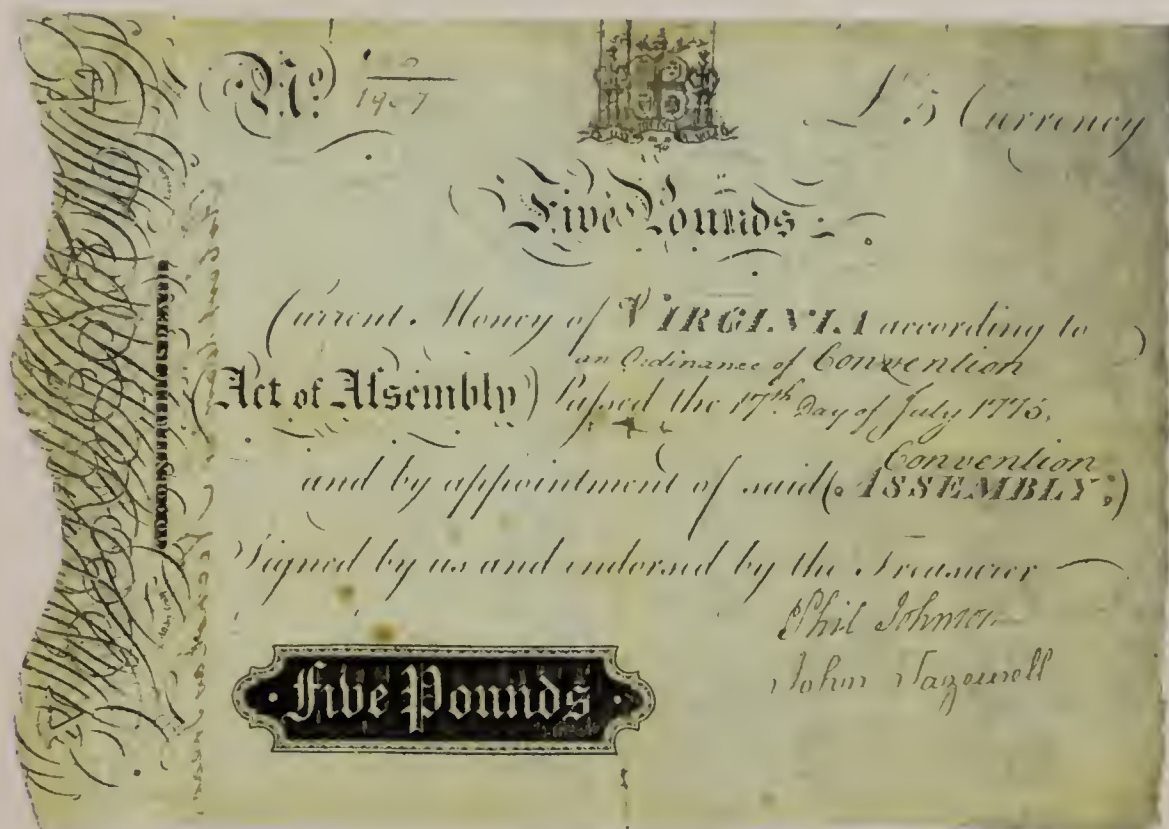 No. 1907
£5 Currency
Five Pounds
Current Money of VIRGINIA according to
an Ordinance of Convention
(Act of Assembly) Passed the 17th Day of July 1775.
Convention
and by appointment of said (ASSEMBLY;)
Signed by us and endorsed by the Treasurer
Phil Johnson
John Tazewell
Five Pounds
TO COUNTERFEIT IS DEATH